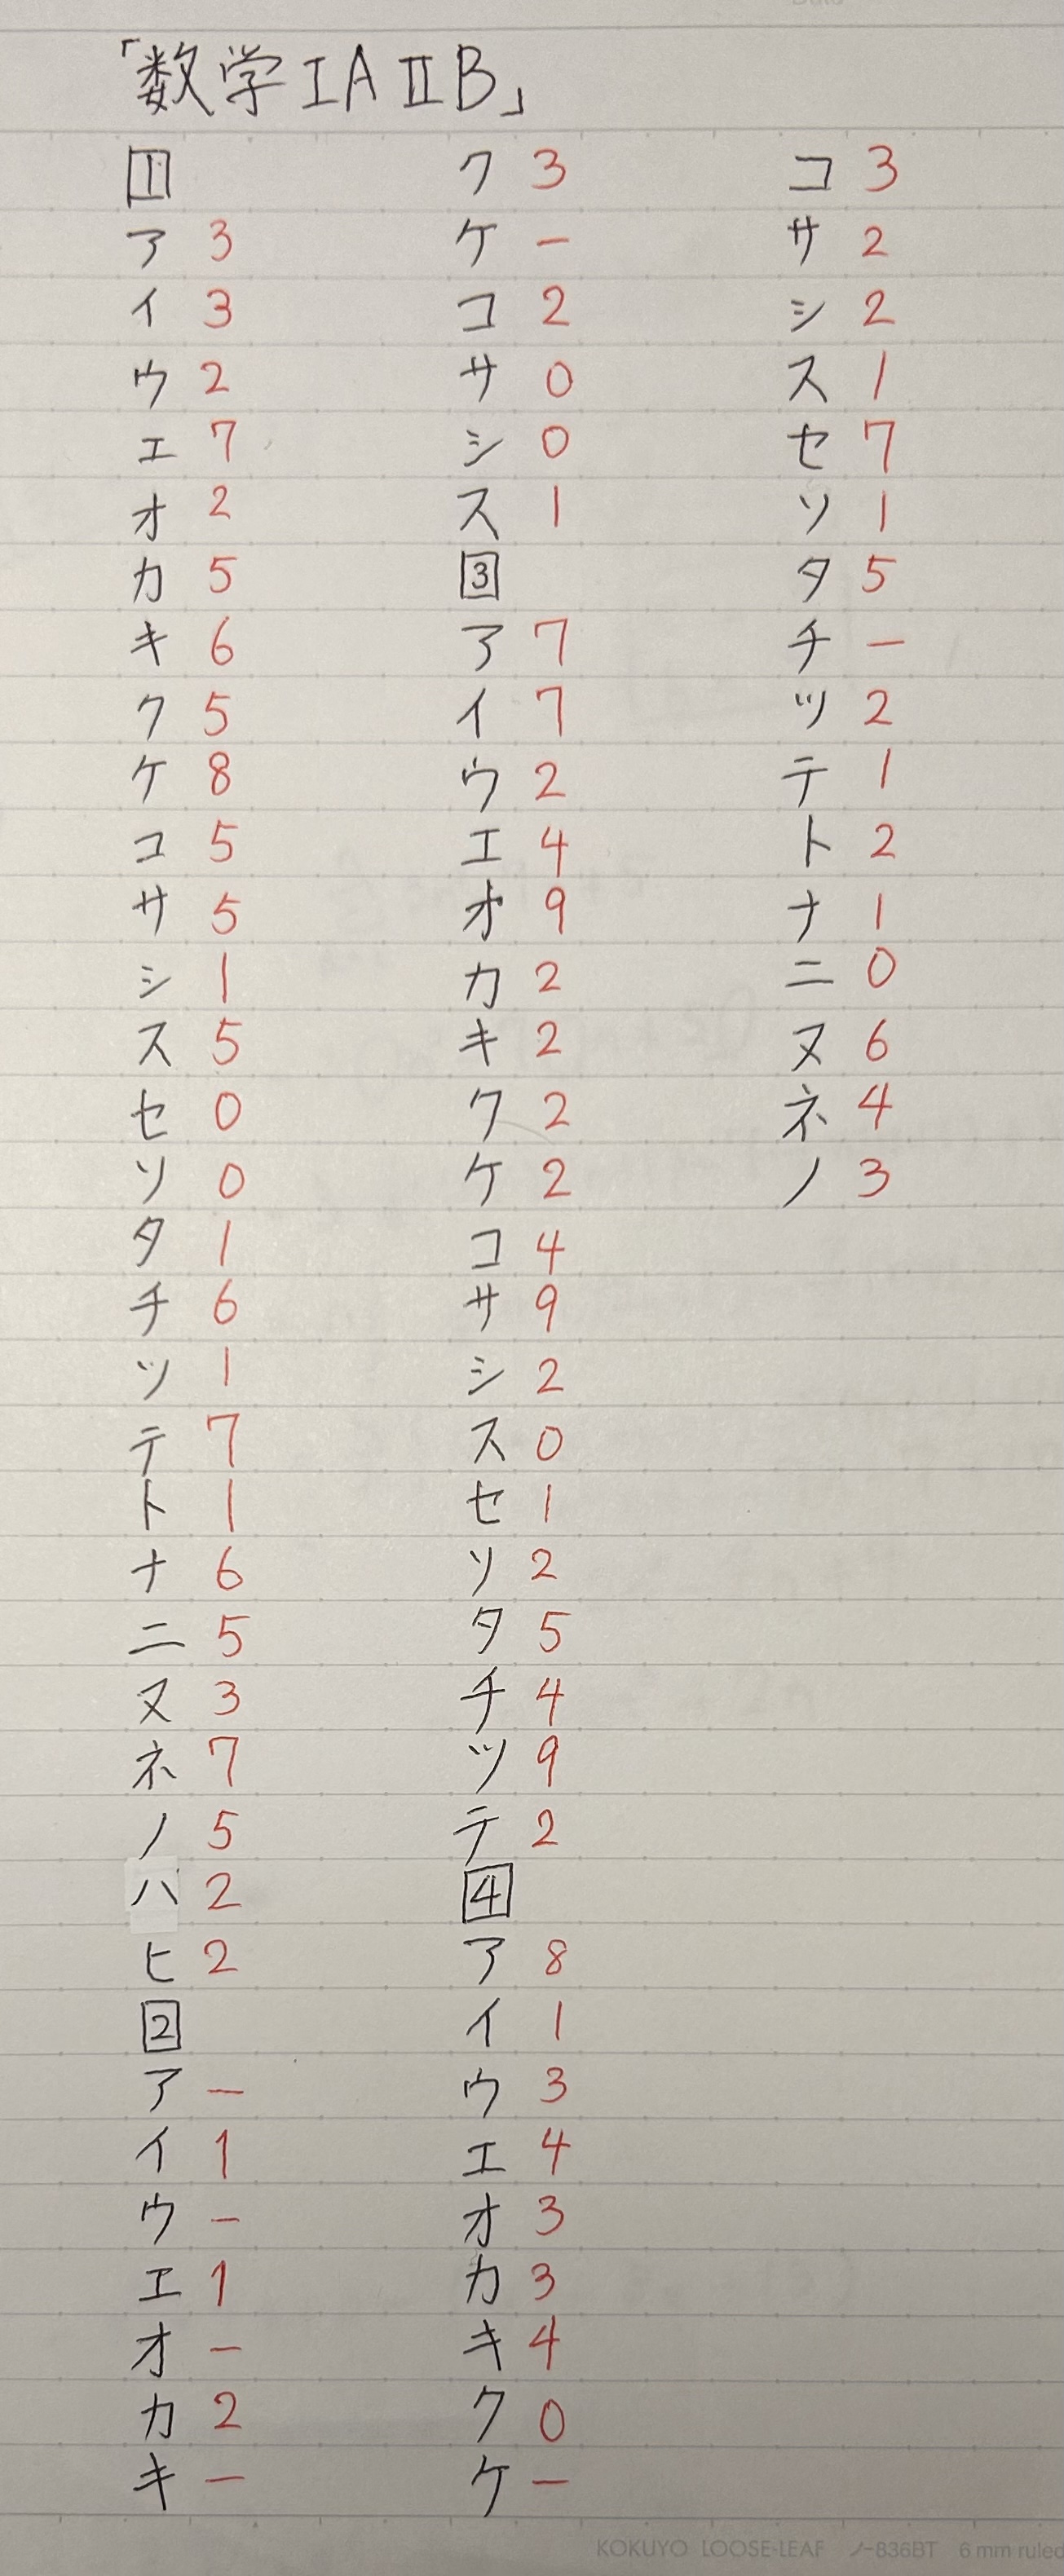 「数学ⅠAⅡB」
1
ア 3
イ 3
ウ 2
エ 7
オ 2
カ 5
キ 6
ク 5
ケ 8
コ 5
サ 5
シ 1
ス 5
セ 0
ソ 0
タ 1
チ 6
ツ 1
テ 7
ト 1
ナ 6
ニ 5
ヌ 3
ネ 7
ノ 5
ハ 2
ヒ 2
2
ア −
イ 1
ウ −
エ 1
オ −
カ 2
キ −
ク 3
ケ −
コ 2
サ 0
シ 0
ス 1
3
ア 7
イ 7
ウ 2
エ 4
オ 9
カ 2
キ 2
ク 2
ケ 2
コ 4
サ 9
シ 2
ス 0
セ 1
ソ 2
タ 5
チ 4
ツ 9
テ 2
4
ア 8
イ 1
ウ 3
エ 4
オ 3
カ 3
キ 4
ク 0
ケ −
コ 3
サ 2
シ 2
ス 1
セ 7
ソ 1
タ 5
チ −
ツ 2
テ 1
ト 2
ナ 1
ニ 0
ヌ 6
ネ 4
ノ 3
KOKUYO LOOSE-LEAF ノ-836BT 6 mm ruled